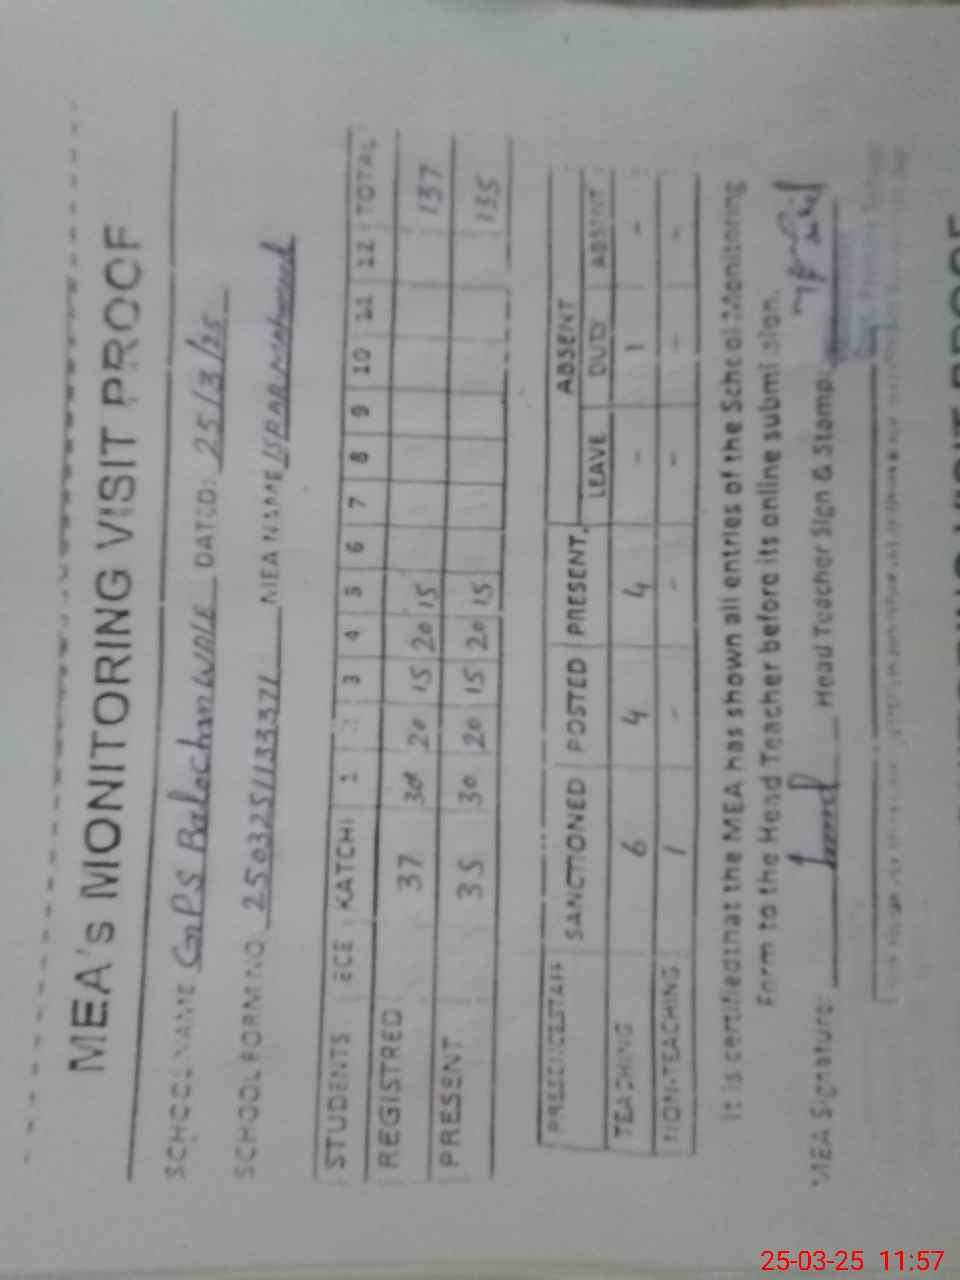 MEA's MONITORING VISIT PROOF
SCHOOL NAME GPS Balochanwala DATED: 25/3/25
SCHOOL FORM NO. 250325113337L MEA NAME
STUDENTS ECE KATCHI 1 2 3 4 5 6 7 8 9 10 11 12 TOTAL
REGISTRED 37 30 20 15 20 15 137
PRESENT 35 30 20 15 20 15 135
ABSENT
SANCTIONED POSTED PRESENT LEAVE DUTY ABSENT
TEACHING 6 4 4 - 1 -
NON-TEACHING 1 - - - - -
It is certified that the MEA has shown all entries of the School Monitoring
Form to the Head Teacher before its online submission.
MEA Signature: Head Teacher Sign & Stamp:
25-03-25 11:57